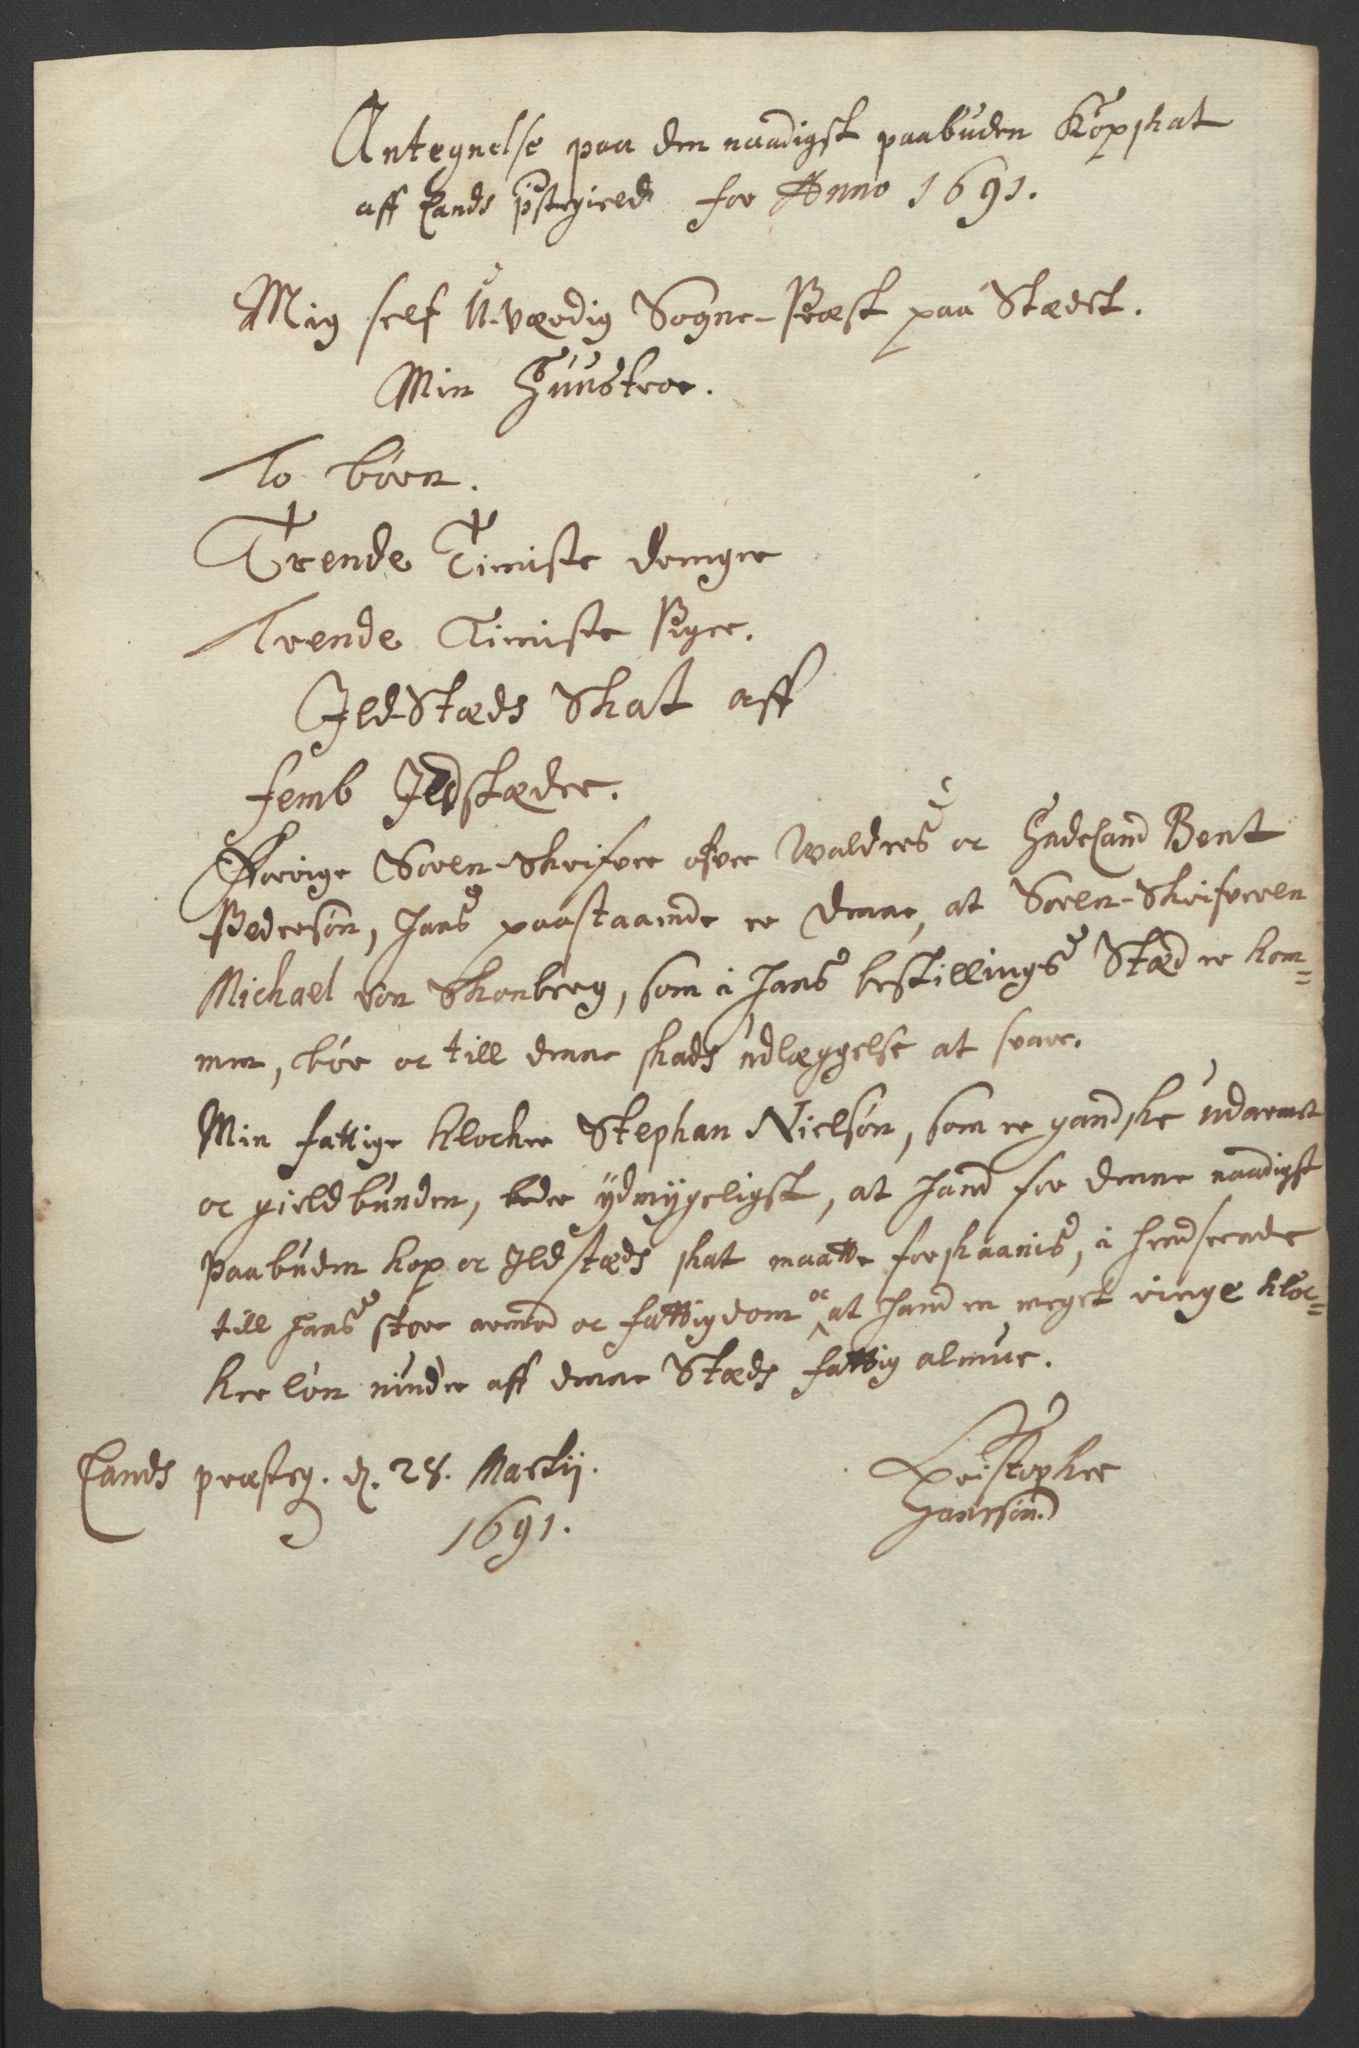 Antegnelse paa den naadigst paabuden Kopskat
aff Lands pstegield for Anno 1691.
Mig self U-værdig Sogne-Præst paa Stædet.
Min Huustroe.
To børn.
Trende Tieniste drenger
Trende Tieniste Piger.
Ild-Stæds Skat aff
femb Ildstæder.
Forrige Soren-Skrifver ofver Waldres oc Hadeland Bent
Pedersøn, hans paastaaende er denne, at Soren-Skrifveren
Michael von Skonberg, som i hans bestillings Stæd er kom-
men, bør oc till denne skads udlæggelse at svare.
Min fattige klocker Stephan Nielsøn, som er gandske udarmet
oc gieldbunden, beder ydmygeligst, at hand for denne naadigst
paabuden kop oc Ildstæds skat maatte forskaanis, i henseende
till hans store armod oc fattigdom oc at hand en meget ringe kloc-
ker løn niuder aff denne Stæds fattig almue.
Lands præsteg. d. 28. Martij.
1691.
Christopher
Hanssøn.